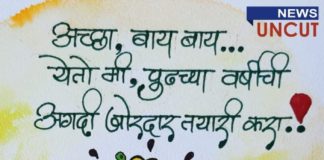 NEWS
UNCUT
अच्छा, बाय बाय...
येतो मी, पुढच्या वर्षीची
अगदी जोरदार तयारी करा..!